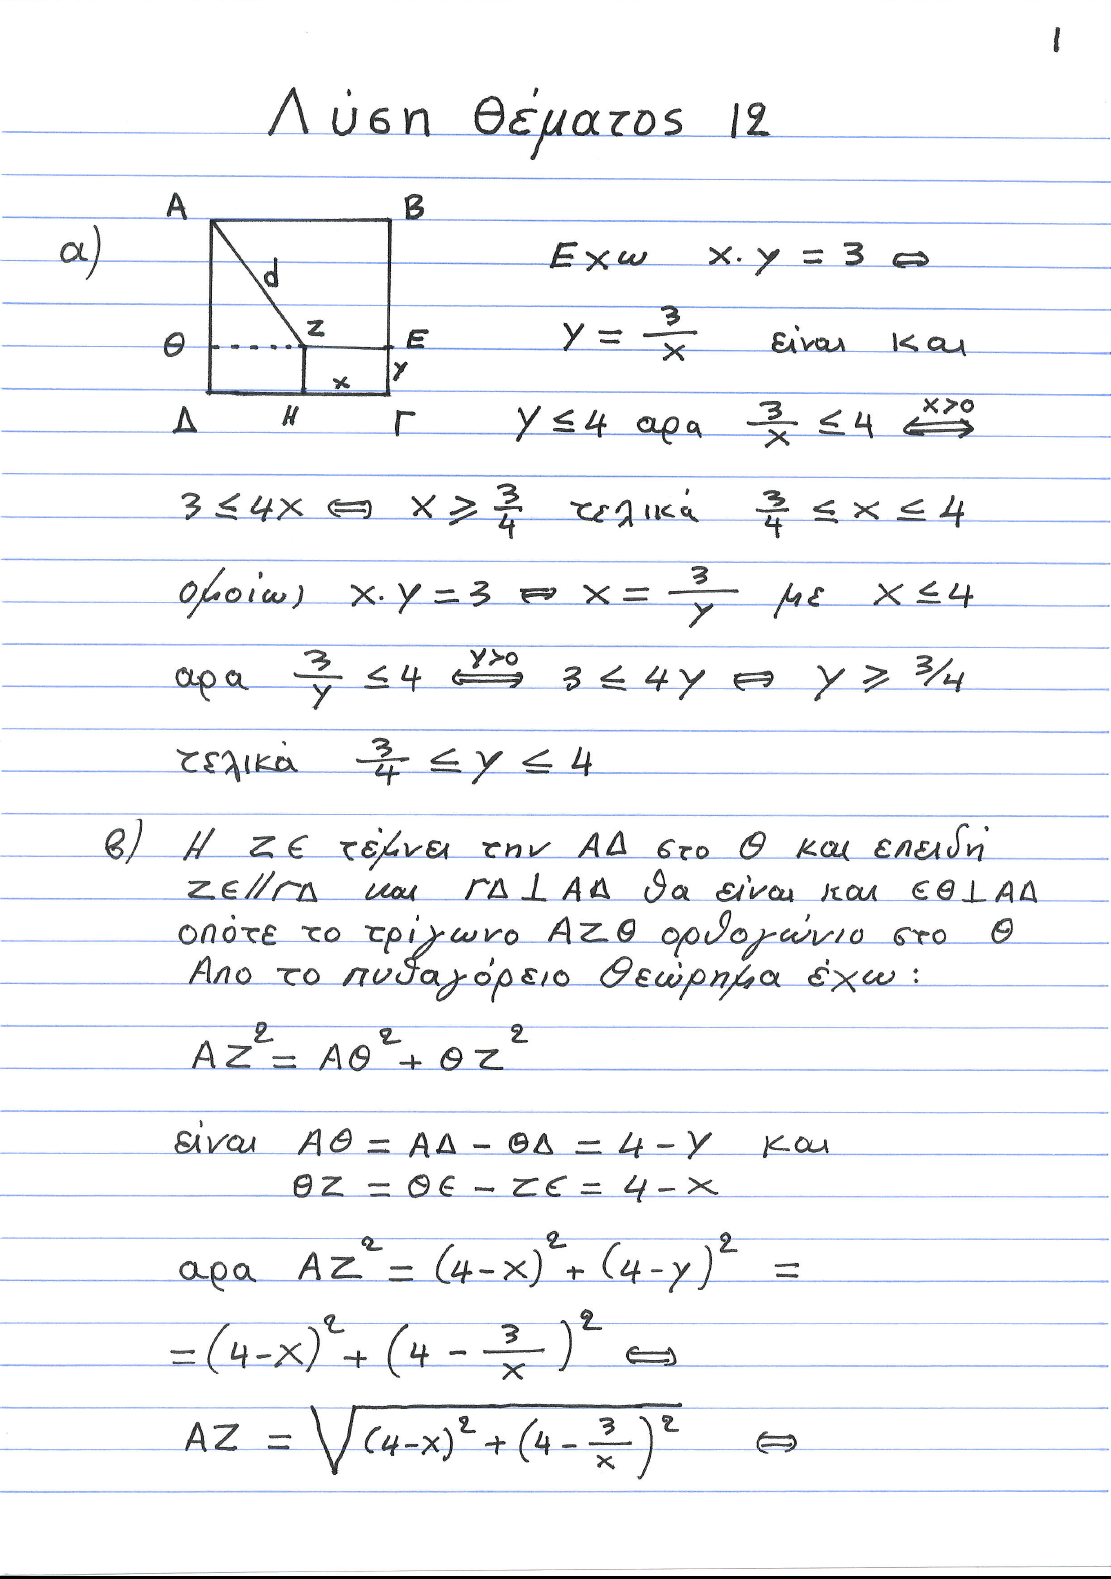 1
Λύση Θέματος 12
α)
Α Β
d
Ζ
Θ Ε
x y
Δ Η Γ
Εχω x·y = 3 ⇔
y = 3/x είναι και
y ≤ 4 αρα 3/x ≤ 4 ⇔ (x>0)
3 ≤ 4x ⇔ x ≥ 3/4 τελικά 3/4 ≤ x ≤ 4
ομοίως x·y = 3 ⇔ x = 3/y με x ≤ 4
αρα 3/y ≤ 4 ⇔ (y>0) 3 ≤ 4y ⇔ y ≥ 3/4
τελικά 3/4 ≤ y ≤ 4
β) Η ΖΕ τέμνει την ΑΔ στο Θ και επειδή
ΖΕ//ΓΔ και ΓΔ⊥ΑΔ θα είναι και ΕΘ⊥ΑΔ
οπότε το τρίγωνο ΑΖΘ ορθογώνιο στο Θ
Απο το πυθαγόρειο Θεώρημα έχω:
ΑΖ² = ΑΘ² + ΘΖ²
είναι ΑΘ = ΑΔ - ΘΔ = 4 - y και
ΘΖ = ΘΕ - ΖΕ = 4 - x
αρα ΑΖ² = (4-x)² + (4-y)² =
= (4-x)² + (4 - 3/x)² ⇔
ΑΖ = √((4-x)² + (4 - 3/x)²) ⇔